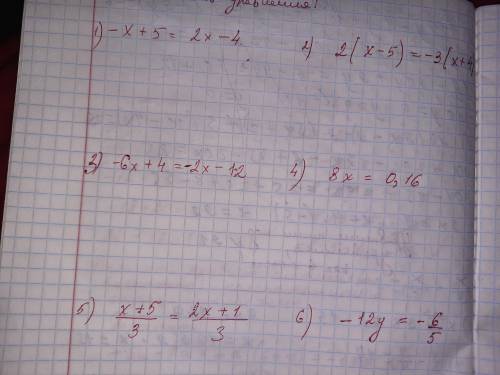 уравнения!
1) -x+5 = 2x-4
2) 2(x-5) = -3(x+4)
3) -6x+4 = -2x-12
4) 8x = 0,16
5) \frac{x+5}{3} = \frac{2x+1}{3}
6) -12y = -\frac{6}{5}